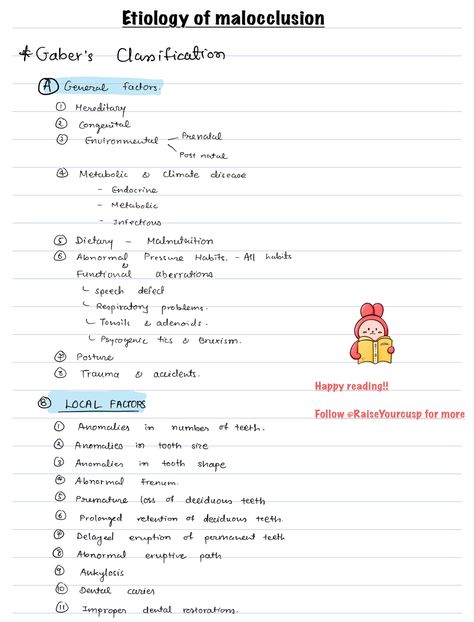 Etiology of malocclusion
* Gaber's Classification
A General factors.
1 Hereditary
2 Congenital
3 Environmental Prenatal
Post natal
4 Metabolic & Climate disease
- Endocrine
- Metabolic
- Infectious
5 Dietary - Malnutrition
6 Abnormal Pressure Habits. - All habits
&
Functional aberrations
speech defect
Respiratory problems.
Tonsils & adenoids.
Psycogenic tics & Bruxism.
7 Posture
8 Trauma & accidents.
B LOCAL FACTORS
1 Anomalies in number of teeth.
2 Anomalies in tooth size
3 Anomalies in tooth shape
4 Abnormal frenum.
5 Premature loss of deciduous teeth
6 Prolonged retention of deciduous teeth.
7 Delayed eruption of permanent teeth
8 Abnormal eruptive path
9 Ankylosis
10 Dental caries
11 Improper dental restorations.
Happy reading!!
Follow @RaiseYourcusp for more